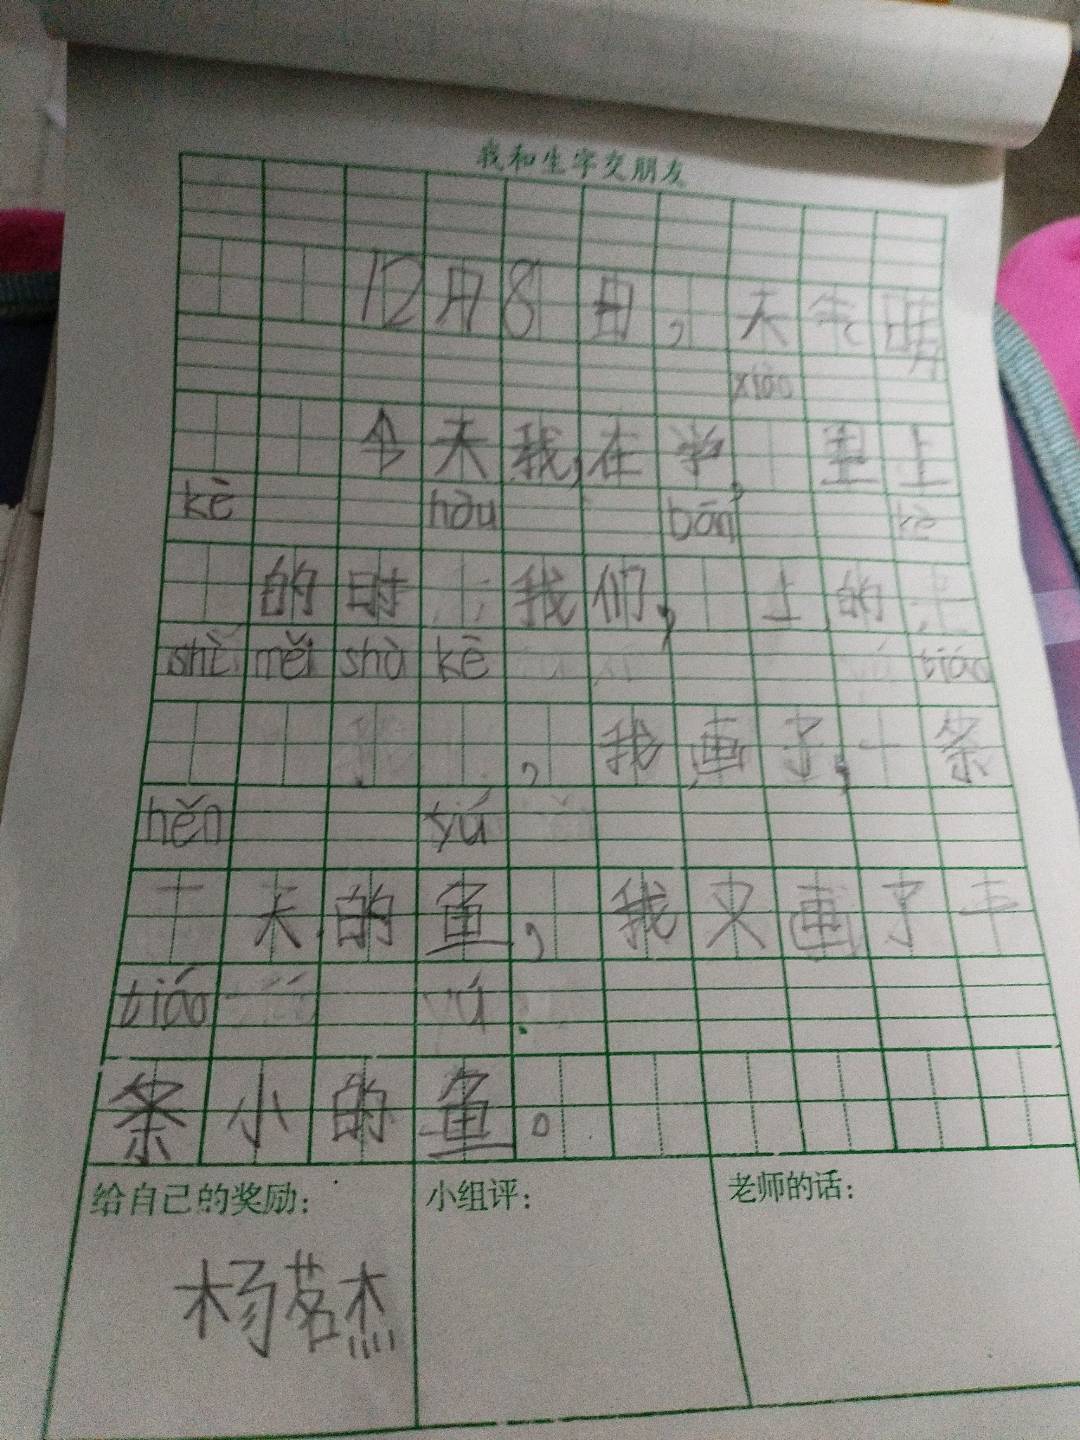 我和生字交朋友
12月8日，天气晴
xiào
今天我，在学， 里上
kè hòu bān kè
的时 我们， 上的
shì měi shù kè tiáo
， 我画了，一条
hěn yú
十天的鱼，我又画了
tiáo yú
条小的鱼。
给自己的奖励： 小组评： 老师的话：
杨茗杰